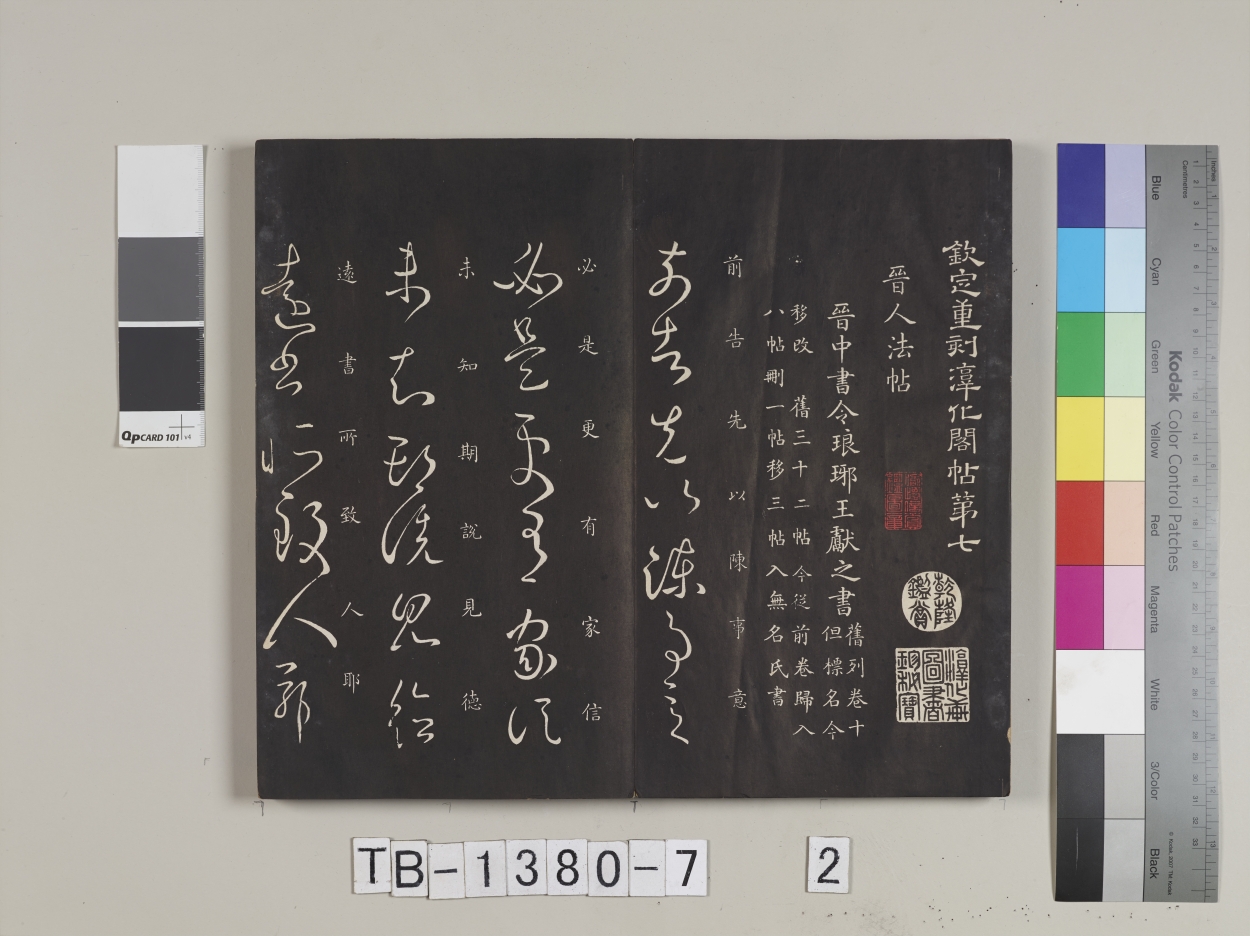 欽定重刻淳化閣帖第七
晉人法帖
乾隆鑑賞
淳化軒圖書珍秘寶
晉中書令琅琊王獻之書
舊列卷十
但標名今
移改 舊三十二帖今從前卷歸入
八帖刪一帖移三帖入無名氏書
前告先以陳事意
前告先以陳事意
必是更有家信
必是更有家信
未知期說見德
未知期說見德
遠書所致人耶
遠書所致人耶
QPCARD 101 v4
TB-1380-7
2
Kodak Color Control Patches
Blue
Cyan
Green
Yellow
Red
Magenta
White
3/Color
Black
Inches
Centimetres
© Kodak, 2007 TM: Kodak